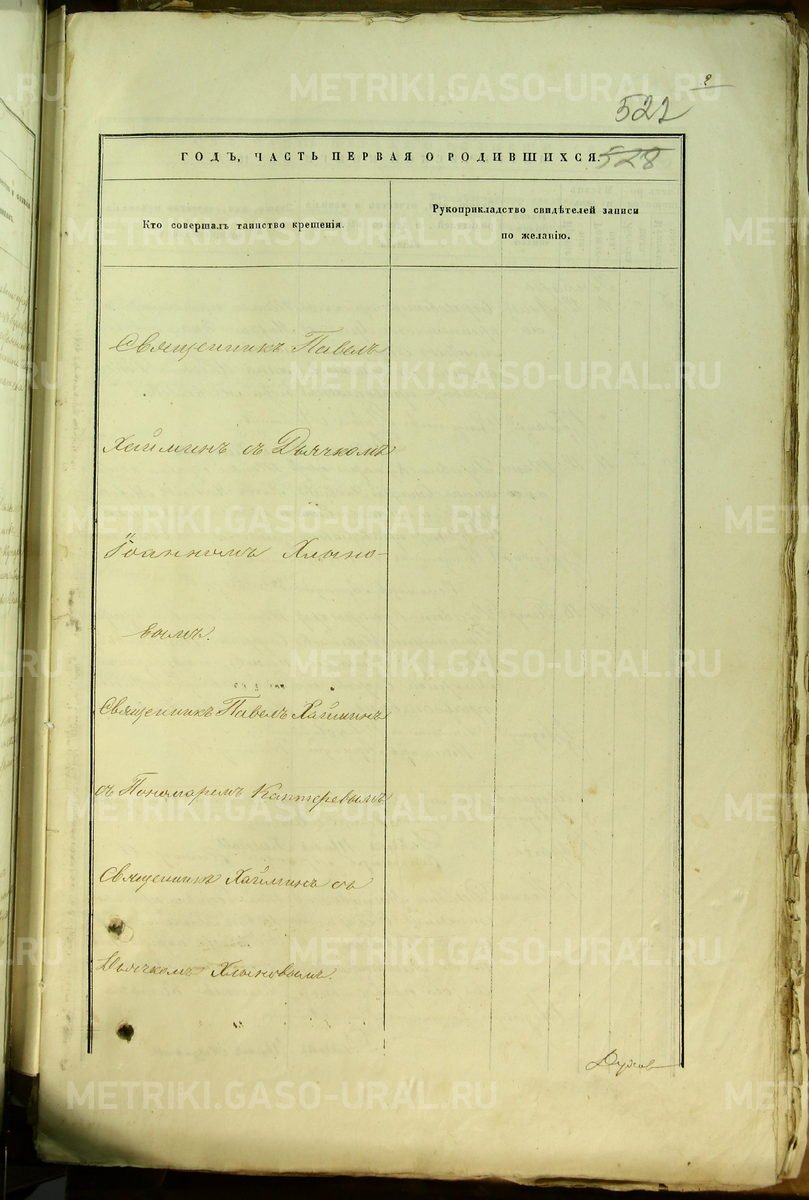 522
528
ГОДЪ, ЧАСТЬ ПЕРВАЯ О РОДИВШИХСЯ.
Кто совершалъ таинство крещенія.
Рукоприкладство свидѣтелей записи
по желанію.
Священникъ Павелъ
Хайминъ съ Дьячкомъ
Іоанномъ Хлыно-
вымъ.
Священникъ Павелъ Хайминъ
съ Пономаремъ Каптеревымъ
Священникъ Хайминъ съ
Дьячкомъ Хлыновымъ.
METRIKI.GASO-URAL.RU